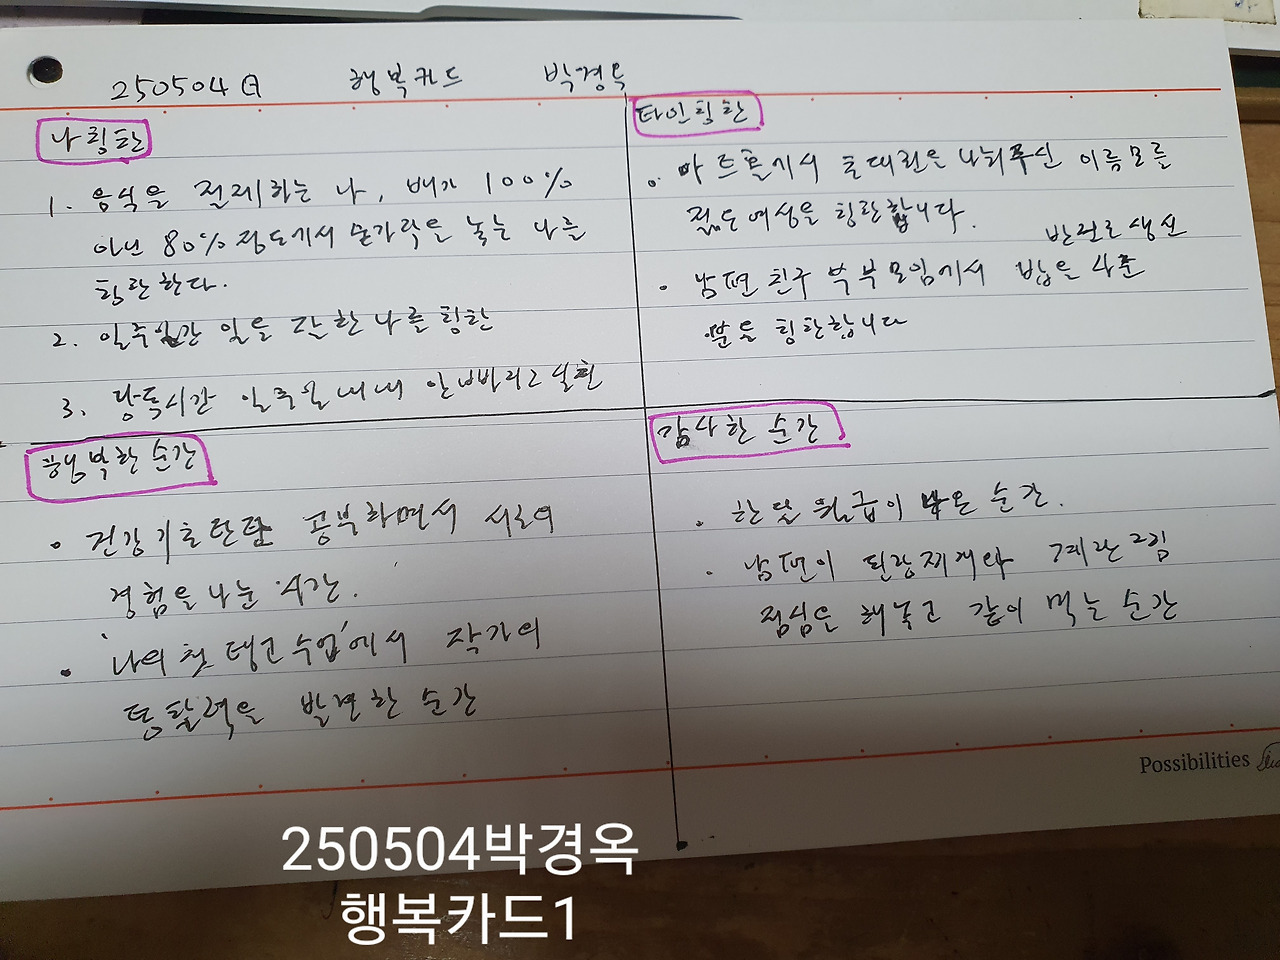 250504일 행복카드 박경옥
나 칭찬
1. 음식을 절제하는 나, 배가 100%
아닌 80% 정도에서 숟가락을 놓는 나를
칭찬한다.
2. 일주일간 일을 잘한 나를 칭찬
3. 당독시간 일주일 내내 안 빠지고 실천
타인칭찬
• 마트 에서 나눠주신 이름모를
젊은 여성을 칭찬합니다.
• 남편 친구 부부모임에서 밥을 사준
분을 칭찬합니다
행복한 순간
• 건강기초탄탄 공부하면서 서로의
경험을 나눈 시간.
• '나의 첫 수업'에서 작가의
통찰력을 발견한 순간
감사한 순간
• 한달 월급이 순간.
• 남편이 된장찌개와 계란
점심을 해놓고 같이 먹는 순간
Possibilities
250504박경옥
행복카드1